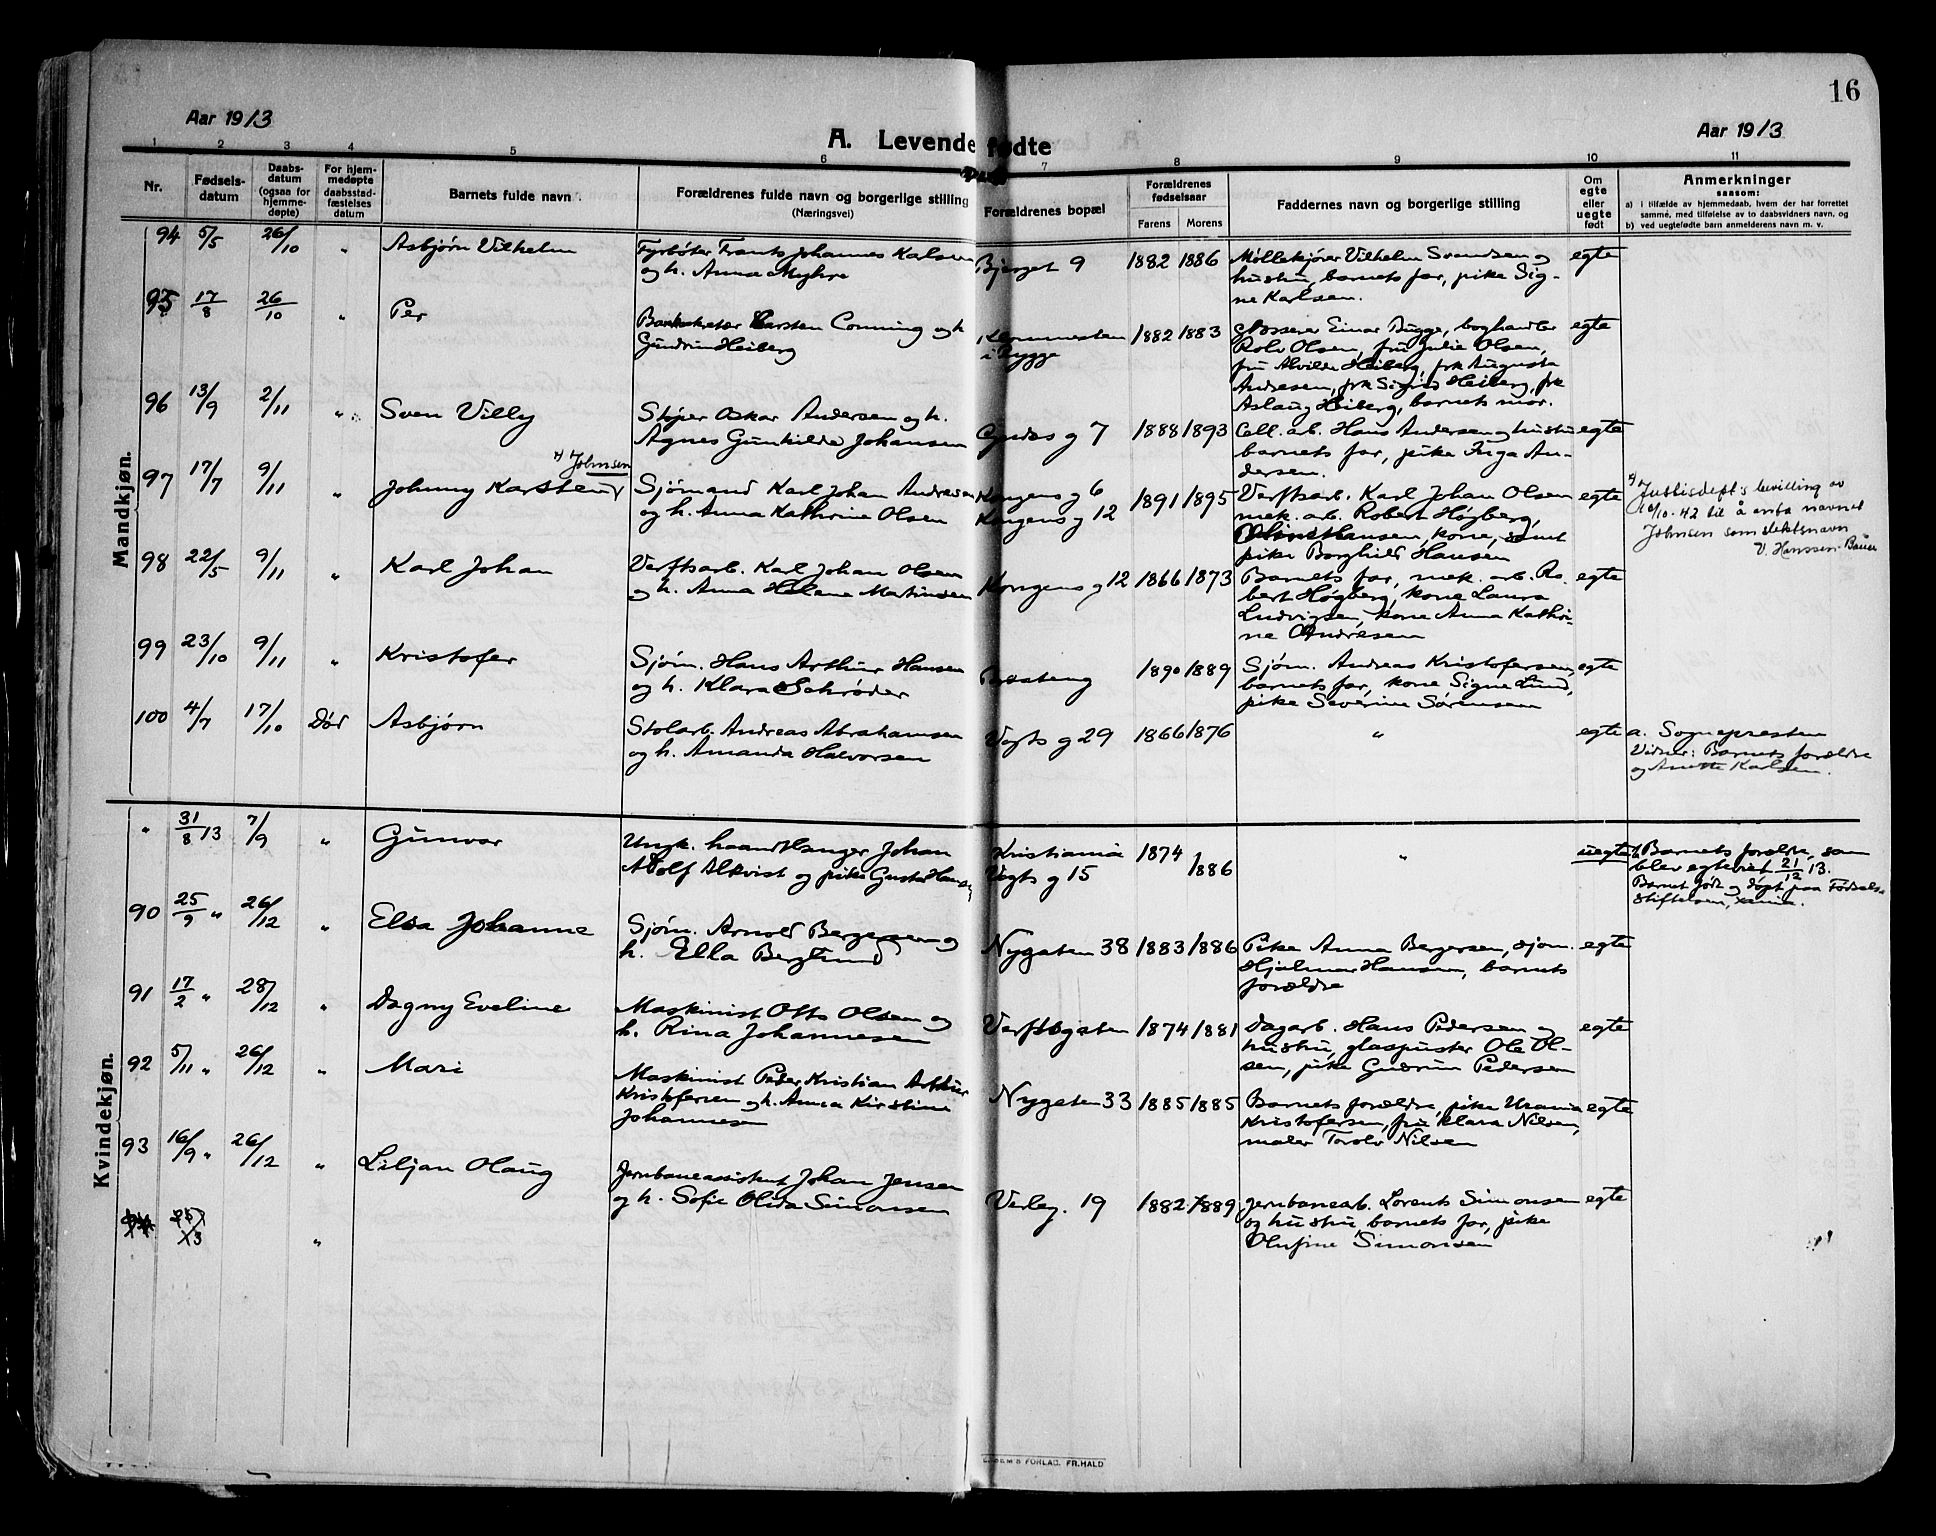 16
Aar 1913
A. Levende fødte
Aar 1913
1 2 3 4 5 6 7 8 9 10 11
Nr.
Fødsels-
datum
Daabs-
datum
(ogsaa for
hjemme-
døpte)
For hjem-
medøpte
daabsstad-
fæstelses
datum
Barnets fulde navn
Forældrenes fulde navn og borgerlige stilling
(Næringsvei)
Forældrenes bopæl
Forældrenes
fødselsaar
Farens Morens
Faddernes navn og borgerlige stilling
Om
egte
eller
uegte
født
Anmerkninger
saasom:
a) i tilfælde av hjemmedaab, hvem der har forrettet
samme, med tilføielse av to daabsvidners navn, og
b) ved uegtefødte barn anmelderens navn m. v.
Mandkjøn.
94 5/5 26/10 " Asbjørn Vilhelm
Fyrbøter Frants Johannes Kalsen
og h. Anna Myhre
Bjerget 9 1882 1886
Møllekjører Vilhelm Svendsen og
hustru, barnets far, pike Sig-
ne Karlsen.
egte
95 17/8 26/10 " Per
Banksekretær Karsten Conning og h
Gudrun Heiberg
i Rygge
1882 1883
Grosserer Einar Bugge, boghandler
Rolv Olsen, fru Julie Olsen,
fru Alvilde Heiberg, frk Augusta
Andresen, frk Sigrid Heiberg, frk
Aslaug Heiberg, barnets mor.
egte
96 13/9 2/11 " Sven Villy
Støper Oskar Andersen og h.
Agnes Gunhilde Johansen
g 7 1888 1893
Cell. arb. Hans Andersen og hustru
barnets far, pike Inga An-
dersen.
egte
97 17/7 9/11 " Johnny Karsten
x) Johnsen
Sjømand Karl Johan Andresen
og h. Anna Kathrine Olsen
Kongens g 6
Kongens g 12
1891 1895
Verftsarb. Karl Johan Olsen
mek. arb. Robert Høgberg,
Hansen, kone, samt
pike Borghild Hansen
egte
x) Justisdept's bevilling av
10/10-42 til å anta navnet
Johnsen som slektsnavn
V. Hanssen-Bauer
98 22/5 9/11 " Karl Johan
Verftsarb. Karl Johan Olsen
og h. Anna Helene Martinsen
Kongens g 12 1866 1873
Barnets far, mek. arb. Ro-
bert Høgberg, kone Laura
Ludvigsen, kone Anna Kathri-
ne Andresen
egte
99 23/10 9/11 " Kristofer
Sjøm. Hans Arthur Hansen
og h. Klara Schrøder
1890 1889
Sjøm. Andreas Kristofersen,
barnets far, kone Signe Lund,
pike Severine Sørensen
egte
100 4/7 17/10 Død Asbjørn
Stolarb. Andreas Abrahamsen
og h. Amanda Halvorsen
Vogts g 29 1866 1876 "
egte
a. Sognepresten
Vidner: Barnets forældre
og Anette Karlsen.
Kvindekjøn.
" 31/8 13 7/9 " Gunvor
Ungk. haandtlanger Johan
Adolf Alkvist og pike Gusta Hansen
Kristiania
Vogts g 15
1874 1886 "
uegte
b. Barnets forældre, som
blev egteviet 21/12 13.
Barnet født og døpt paa Fødsels-
stiftelsen, Xania.
90 25/9 " 26/12 " Elsa Johanne
Sjøm. Arnold Bergersen og
h. Ella Berglund
Nygaten 38 1883 1886
Pike Anna Bergersen, sjøm.
Hjalmar Hansen, barnets
forældre
egte
91 17/2 " 28/12 " Dagny Eveline
Maskinist Otto Olsen og
h. Rina Johannesen
Verftsgaten 1874 1881
Dagarb. Hans Pedersen og
hustru, glaspuster Ole Ol-
sen, pike Gudrun Pedersen
egte
92 5/11 " 26/12 " Mari
Maskinist Peder Kristian Arthur
Kristofersen og h. Anna Kirstine
Johannesen
Nygaten 33 1885 1885
Barnets forældre, pike Urania
Kristofersen, fru Klara Nilsen,
maler Torolv Nilsen
egte
93 16/9 " 26/12 " Liljan Olaug
Jernbaneassistent Johan Jensen
og h. Sofie Olida Simonsen
Verleg. 19 1882 1889
Jernbanearb. Lorents Simonsen
og hustru, barnets far, pike
Olufine Simonsen
egte
"
FORLAG. FR. HALD